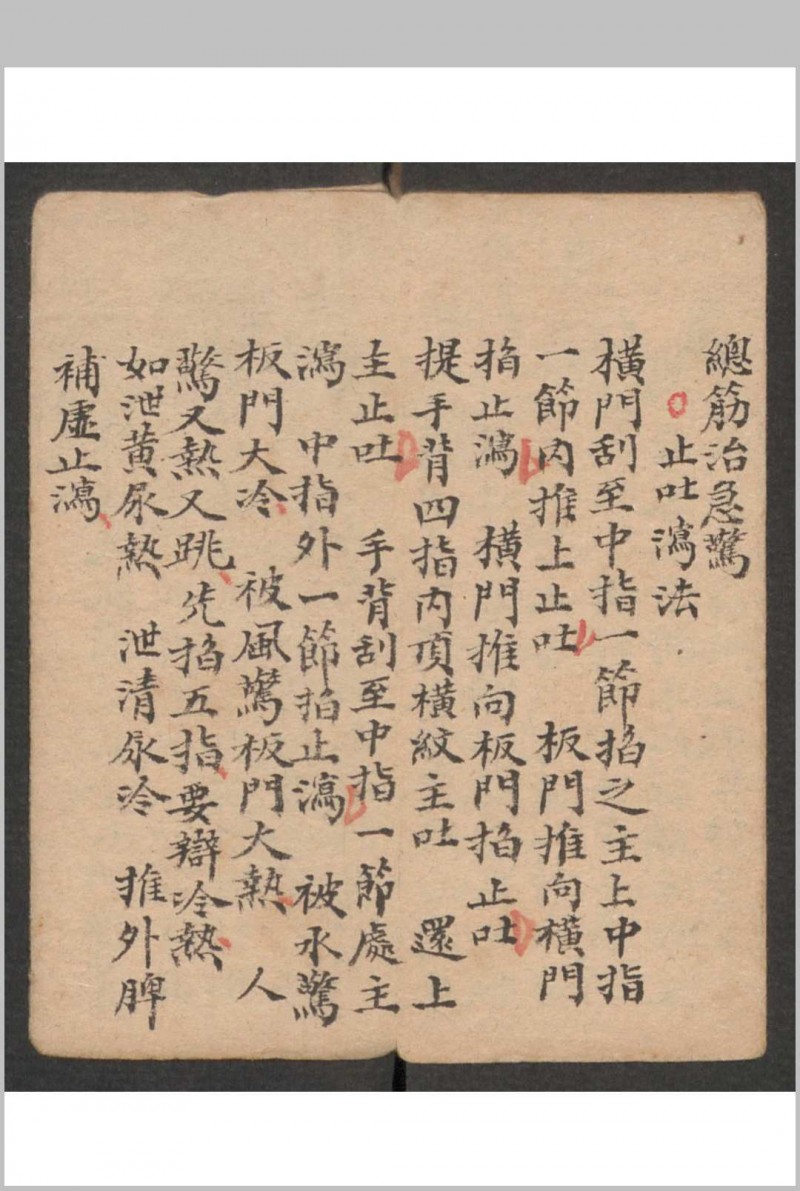 總筋治急驚
止吐瀉法
橫門刮至中指一節掐之主上中指
一節內推上止吐 板門推向橫門
掐止瀉 橫門推向板門掐止吐
提手背四指內頂橫紋主吐 還上
主止吐 手背刮至中指一節處主
瀉 中指外一節掐止瀉 被水驚
板門大冷 被風驚板門大熱 人
驚又熱又跳先掐五指要辯冷熱
如泄黄尿熱 泄清尿冷 推外脾
補虛止瀉